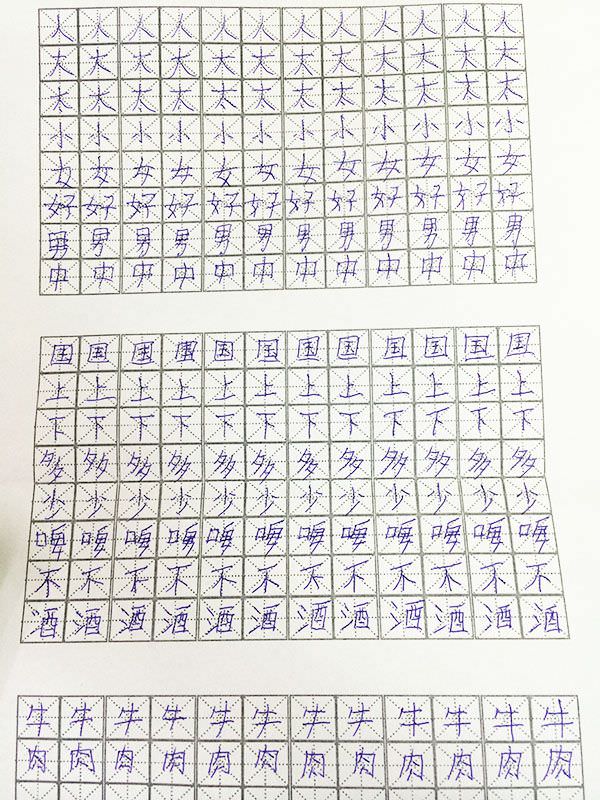 人人人人人人人人人人人人
大大大大大大大大大大大大
太太太太太太太太太太太太
小小小小小小小小小小小小
女女女女女女女女女女女女
好好好好好好好好好好好好
男男男男男男男男男男男男
中中中中中中中中中中中中
国国国国国国国国国国国国
上上上上上上上上上上上上
下下下下下下下下下下下下
多多多多多多多多多多多多
少少少少少少少少少少少少
啤啤啤啤啤啤啤啤啤啤啤啤
不不不不不不不不不不不不
酒酒酒酒酒酒酒酒酒酒酒酒
牛牛牛牛牛牛牛牛牛牛牛牛
肉肉肉肉肉肉肉肉肉肉肉肉